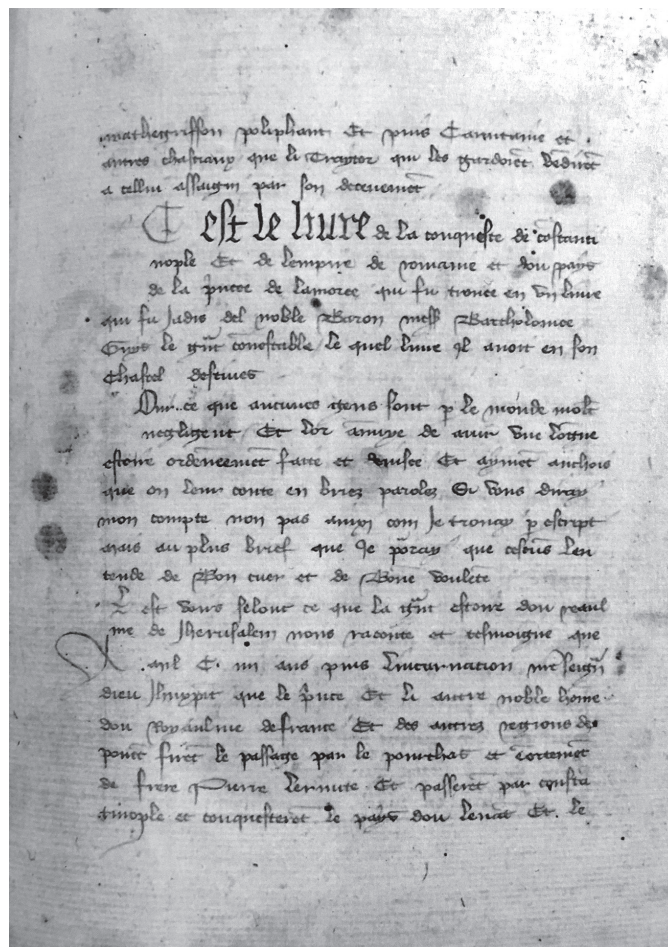 mathegriffon poliphant Et puis Carintaine et
autres chastiaux que li Traytor qui les gardoiēt vēdirēt
a cellui assaigni par son decevemēt
C'est le livre de la conqueste de cōstanti
nople Et de lempire de romanie et dou pays
de la p̄ncee de lamoree qui fu trovee en vn livre
qui fu Jadis del noble Baron mess Bartholomee
Guys le gn̄t conestable le quel livre Jl avoit en son
chastel destives
Our ce que aucunes gens sont p le monde molt
negligent Et lor annuye de auir vne lōgue
estoire ordeneemēt faite et Et aymēt anchois
que on leur conte en briez paroles Si vous diray
mon compte non pas ainxi com Je trovay p escript
mais au plus brief que Je pōray que cescūs len
tende de Bon cuer et de Bōne voulēte
L est voirs selonc ce que la gn̄t estoire dou reaul
me de Jherusalem nous raconte et tesmoigne que
A anl C iiii ans puis lincarnation
dieu que le p̄nce Et li autre noble home
dou Royaulme de france Et des autrez regions de
ponēt firēt le passage par le pourchas et
de frere Pierre lermite Et passerēt par consta
tinople et conquesterēt le pays dou levāt Et le